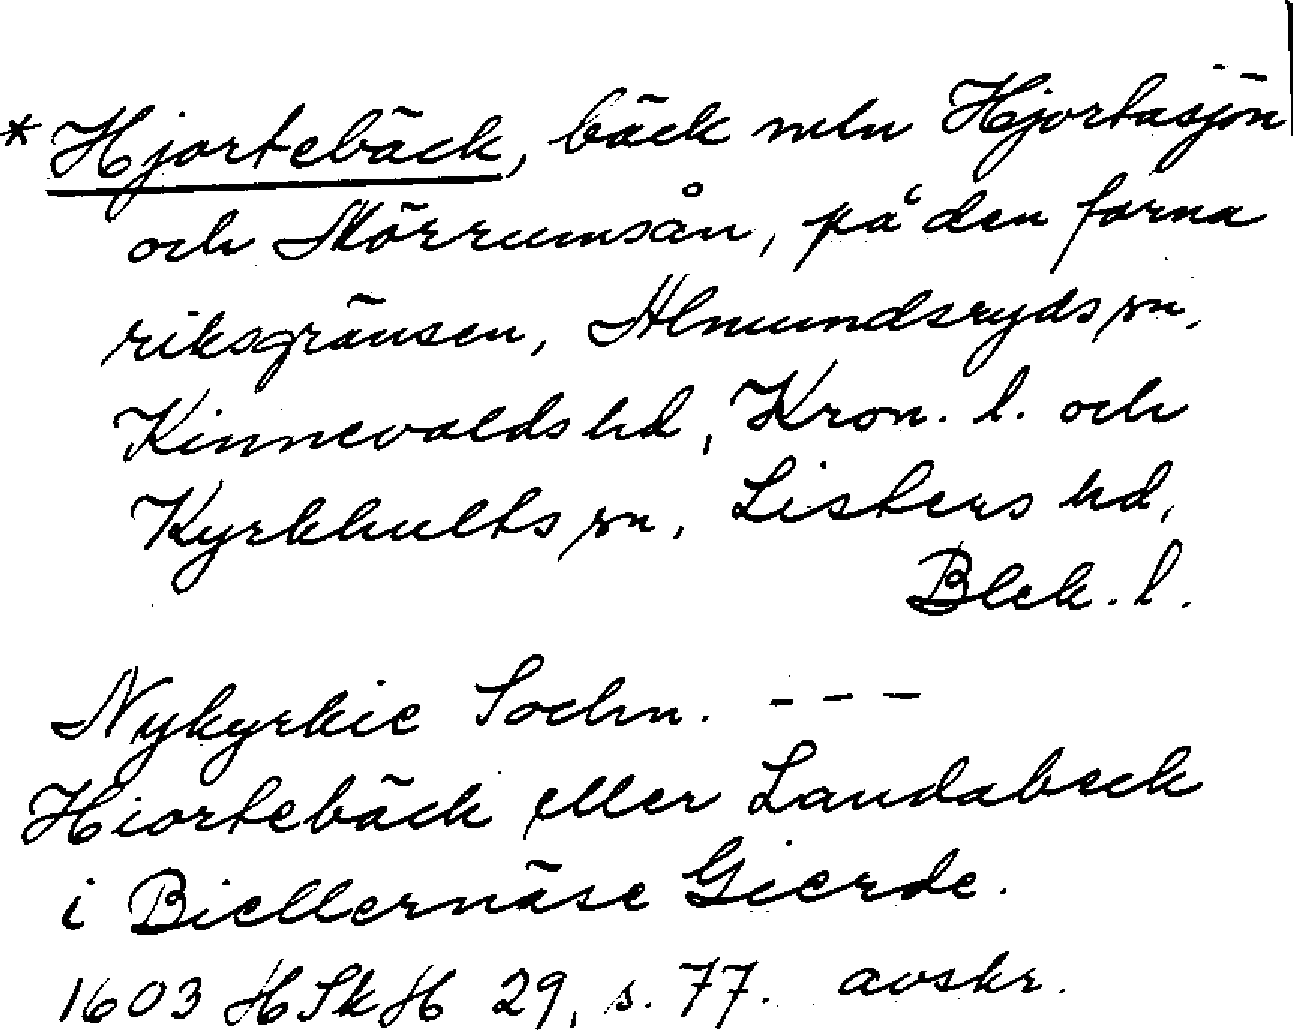 * Hjortebäck, bäck mln Hjortasjön
och Mörrumsån, på den forna
riksgränsen, Almundsryds sn,
Kinnevalds hd, Kron. l. och
Kyrkhults sn, Listers hd,
Blek. l.
Nykyrkie Sochn. - - -
Hiortebäck eller Landabeck
i Biellernäse Gierde.
1603 HSkH 29, s. 77. avskr.